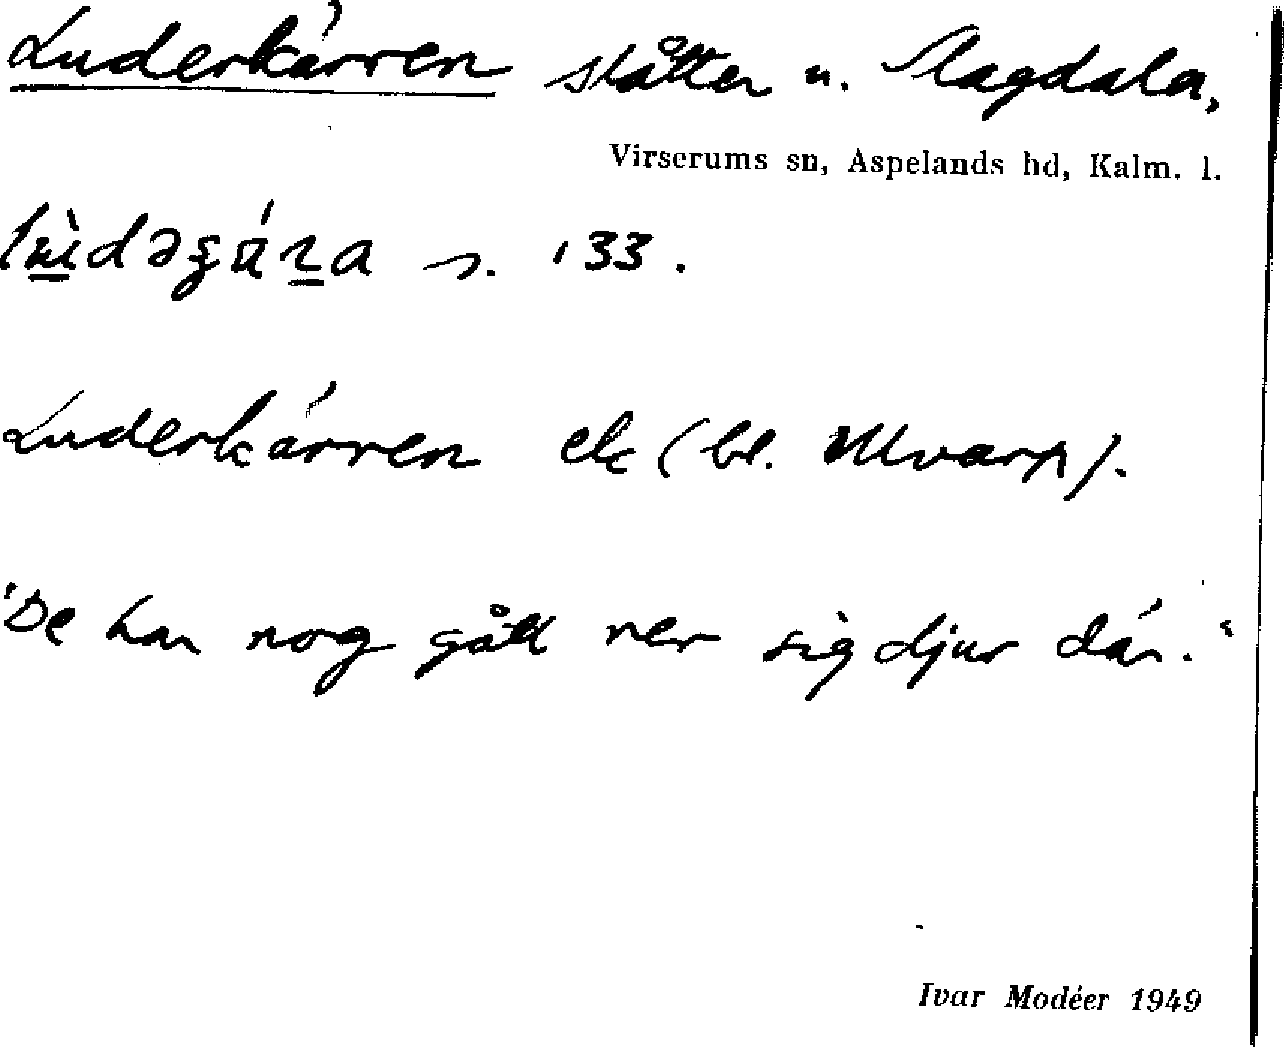 Luderkärren slåtter u. Slagdala,
Virserums sn, Aspelands hd, Kalm. l.
s. 133.
Luderkärren ek (bl. Ulvarp).
"De har nog gått ner sig djur där."
Ivar Modéer 1949